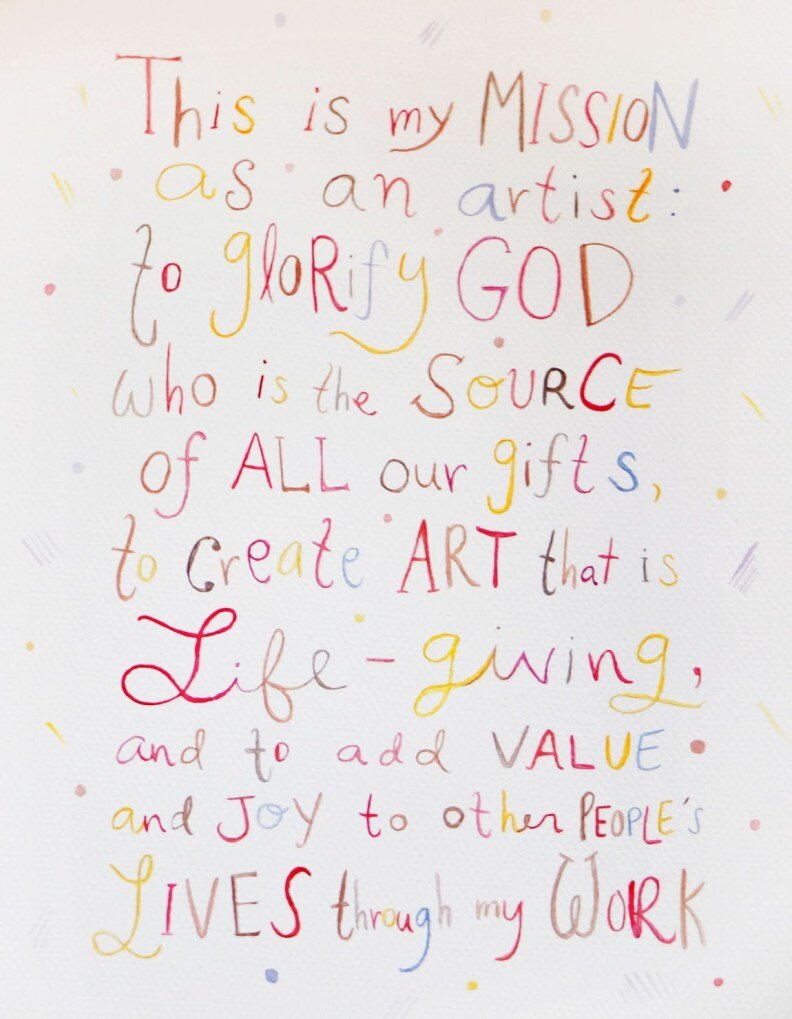 This is my MISSION
as an artist:
to gloRify GOD
who is the SOURCE
of ALL our gifts,
to create ART that is
Life-giving,
and to add VALUE
and JOY to other PEOPLE's
LIVES through my WORK